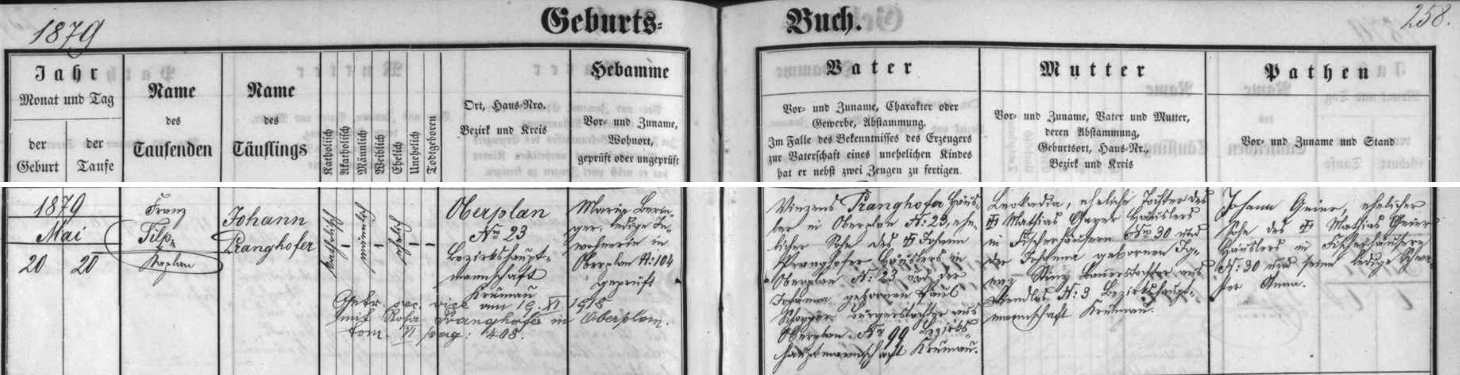 1879
Geburts-
Buch.
258.
Jahr
Monat und Tag
der
Geburt
der
Taufe
Name
des
Taufenden
Name
des
Täuflings
Katholisch
Akatholisch
Männlich
Weiblich
Ehelich
Unehelich
Todtgeboren
Ort, Haus-Nro.
Bezirk und Kreis
Hebamme
Vor- und Zuname,
Wohnort,
geprüft oder ungeprüft
Vater
Vor- und Zuname, Charakter oder
Gewerbe, Abstammung.
Im Falle des Bekenntnisses des Erzeugers
zur Vaterschaft eines unehelichen Kindes
hat er nebst zwei Zeugen zu fertigen.
Mutter
Vor- und Zuname, Vater und Mutter,
deren Abstammung,
Geburtsort, Haus-Nr.,
Bezirk und Kreis
Pathen
Vor- und Zuname und Stand
1879
Mai
20 20
Franz
Kaplan
Johann
Pranghofer
katholisch
männlich
ehelich
Oberplan
No 23
Bezirkshaupt-
mannschaft
Krumau
Maria
ledige In-
wohnerin in
Oberplan N: 104
geprüft
am 19. XI 1918
Rosa Pranghofer in Oberplan.
tom. VI pag: 408.
Vinzenz Pranghofer Häus-
ler in Oberplan N: 23, ehe-
licher Sohn des Johann
Pranghofer Häuslers in
Oberplan N: 23 und der
Johanna gebornen Paul
Bürgerstochter aus
Oberplan No 99 Bezirks-
hauptmannschaft Krumau.
Leokadia, eheliche Tochter des
Mathias Häuslers
in Fischerhäusern No 30 und
der Johanna gebornen
Bauerstochter aus
N: 3 Bezirkshaupt-
mannschaft Krumau.
Johann Geier, ehelicher
Sohn des Mathias Geier
Häuslers in Fischerhäusern
N: 30 und seine ledige Schwe-
ster Anna.